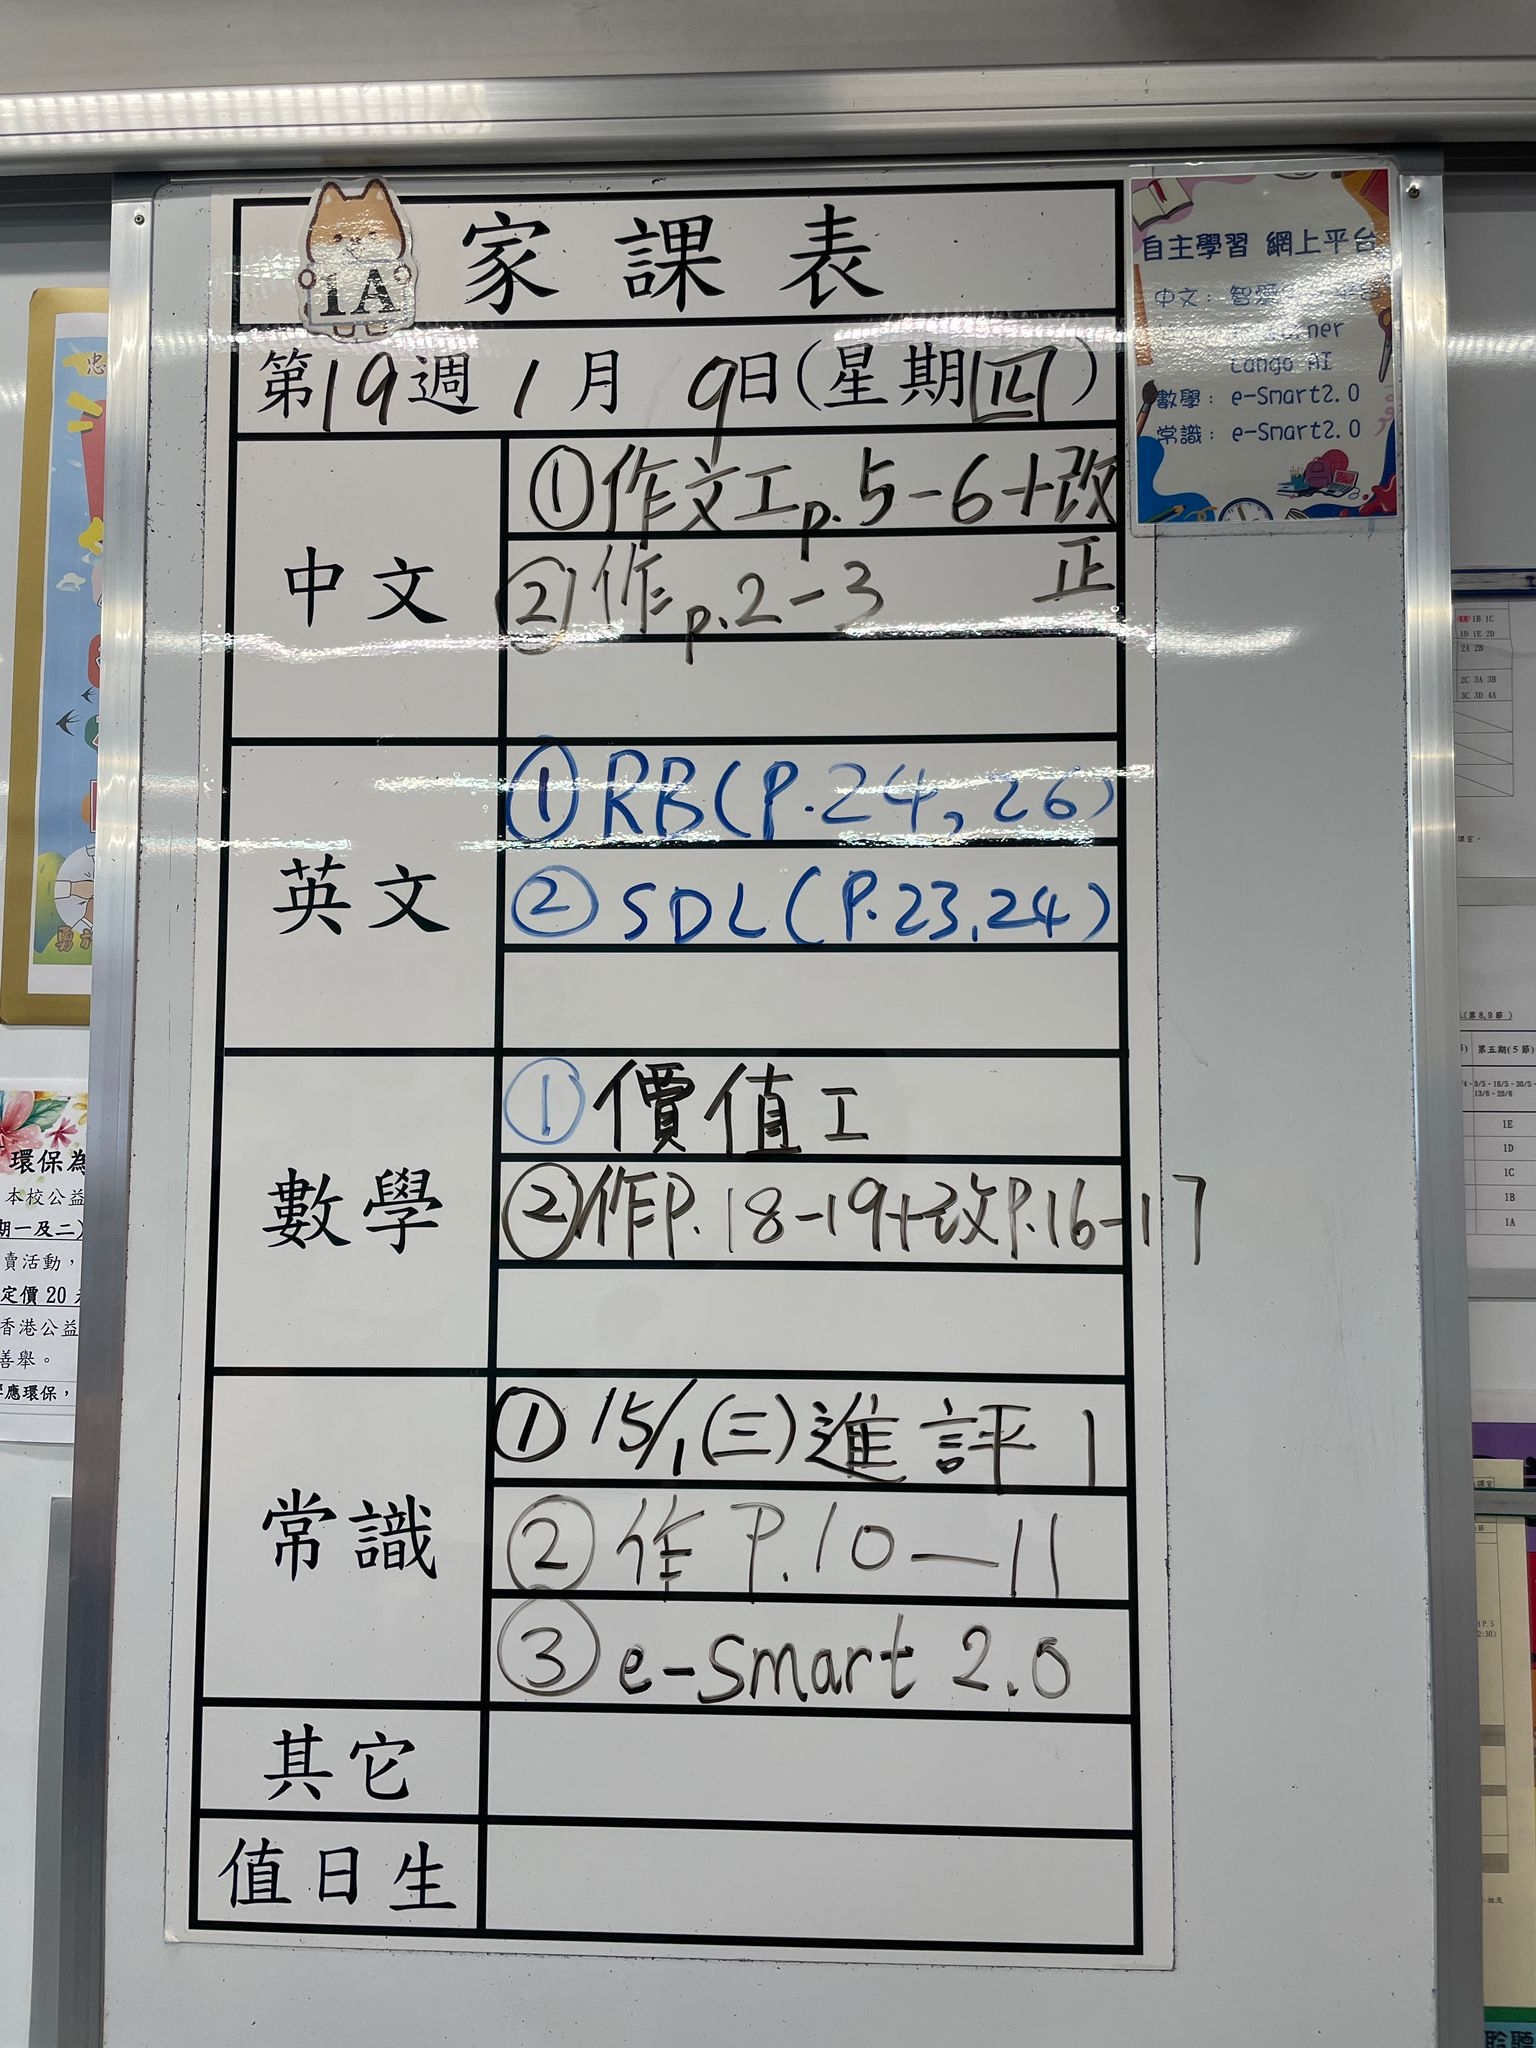 家課表
1A
第19週1月9日(星期四)
中文
①作文工p.5-6+改正
②作p.2-3
英文
①RB(P.24,26)
②SDL(P.23,24)
數學
①價值工
②作P.18-19+改P.16-17
常識
①15/1(三)進評1
②作P.10—11
③e-Smart 2.0
其它
值日生
自主學習 網上平台
中文：智愛
Lango AI
數學：e-Smart2.0
常識：e-Smart2.0
環保為
本校公益
期一及二)
賣活動，
定價20
香港公益
善舉。
應環保，
1A 1B 1C
1D 1E 2D
2A 2B
2C 3A 3B
3C 3D 4A
(第8,9節)
第五期(5節)
1E
1D
1C
1B
1A